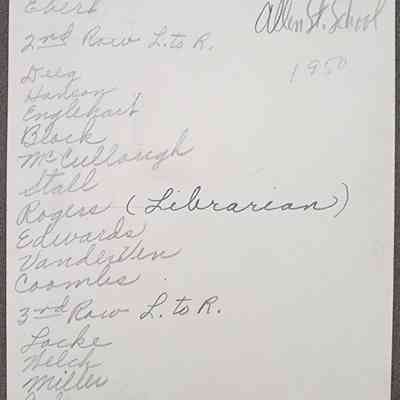 Ebert
Allen St. School
2nd Row L. to R.
1950
Deeg
Hanson
Englehart
Block
McCullough
Stall
Rogers (Librarian)
Edwards
VanderVen
Coombs
3rd Row L. to R.
Locke
Welch
Miller